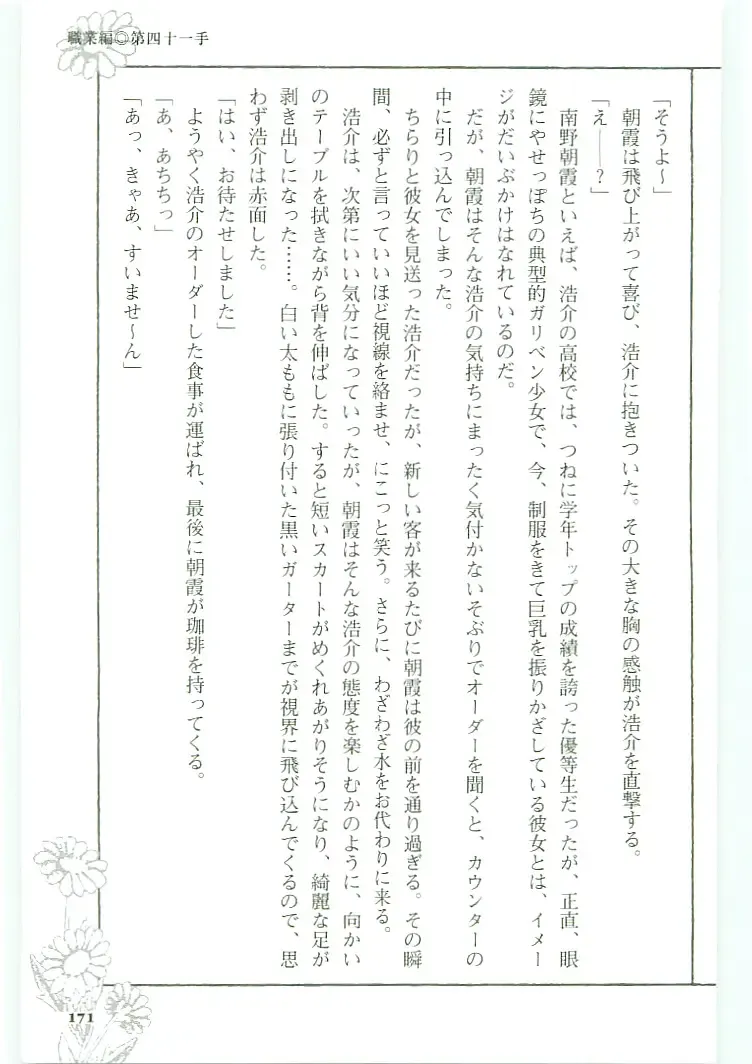 職業編◎第四十一手
「そうよ～」
朝霞は飛び上がって喜び、浩介に抱きついた。その大きな胸の感触が浩介を直撃する。
「え――？」
南野朝霞といえば、浩介の高校では、つねに学年トップの成績を誇った優等生だったが、正直、眼
鏡にやせっぽちの典型的ガリベン少女で、今、制服をきて巨乳を振りかざしている彼女とは、イメー
ジがだいぶかけはなれているのだ。
だが、朝霞はそんな浩介の気持ちにまったく気付かないそぶりでオーダーを聞くと、カウンターの
中に引っ込んでしまった。
ちらりと彼女を見送った浩介だったが、新しい客が来るたびに朝霞は彼の前を通り過ぎる。その瞬
間、必ずと言っていいほど視線を絡ませ、にこっと笑う。さらに、わざわざ水をお代わりに来る。
浩介は、次第にいい気分になっていったが、朝霞はそんな浩介の態度を楽しむかのように、向かい
のテーブルを拭きながら背を伸ばした。すると短いスカートがめくれあがりそうになり、綺麗な足が
剥き出しになった……。白い太ももに張り付いた黒いガーターまでが視界に飛び込んでくるので、思
わず浩介は赤面した。
「はい、お待たせしました」
ようやく浩介のオーダーした食事が運ばれ、最後に朝霞が珈琲を持ってくる。
「あ、あちちっ」
「あっ、きゃあ、すいませ～ん」
171